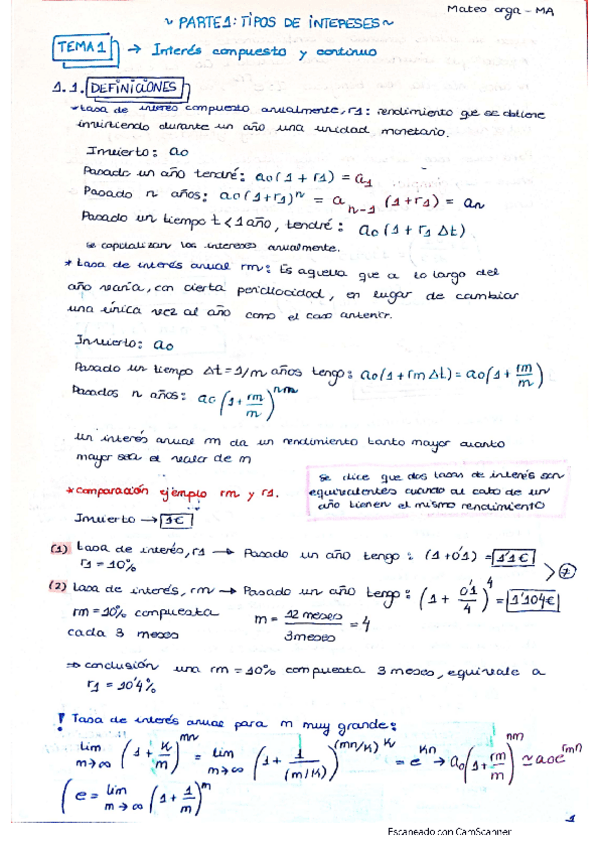 Mateo orga - MA
~ PARTE 1: TIPOS DE INTERESES ~
TEMA 1 → Interés compuesto y continuo
1.1. DEFINICIONES
* tasa de interés compuesto anualmente, r1: rendimiento que se obtiene
invirtiendo durante un año una unidad monetario.
Invierto: a0
Pasado un año tendré: a0(1 + r1) = a1
Pasado n años: a0(1+r1)^n = a_{n-1} (1+r1) = an
Pasado un tiempo t < 1 año, tendré: a0(1 + r1 Δt)
se capitalizan los intereses anualmente.
* tasa de interés anual rm: Es aquella que a lo largo del
año varía, con cierta periodicidad, en lugar de cambiar
una única vez al año como el caso anterior.
Invierto: a0
Pasado un tiempo Δt = 1/m años tengo: a0(1 + rm Δt) = a0(1 + rm/m)
Pasados n años: a0(1 + rm/m)^{nm}
un interés anual m da un rendimiento tanto mayor cuanto
mayor sea el valor de m
* comparación ejemplo rm y r1.
se dice que dos tasas de interés son
equivalentes cuando al cabo de un
año tienen el mismo rendimiento
Invierto → 1€
(1) tasa de interés, r1 → Pasado un año tengo: (1 + 0'1) = 1'1€
r1 = 10%
(2) tasa de interés, rm → Pasado un año tengo: (1 + 0'1/4)^4 = 1'104€
rm = 10% compuesta
cada 3 meses
m = 12 meses/3 meses = 4
⇒ conclusión una rm = 10% compuesta 3 meses, equivale a
r1 = 10'4%
! Tasa de interés anual para m muy grande:
lim m→∞ (1 + K/m)^{mn} = lim m→∞ (1 + 1/(m/K))^{(mn/K) K} = e^{Kn} → a0(1 + rm/m)^{nm} ≃ a0e^{rmn}
(e = lim m→∞ (1 + 1/m)^m
1
Escaneado con CamScanner